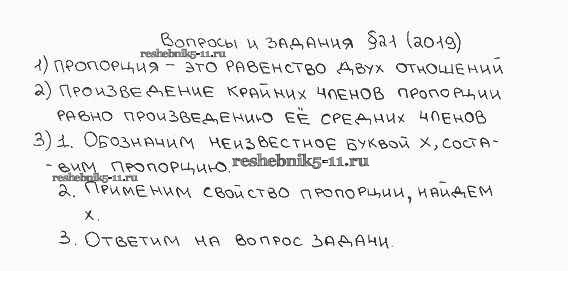 Вопросы и задания §21 (2019)
reshebnik5-11.ru
1) Пропорция – это равенство двух отношений
2) Произведение крайних членов пропорции
равно произведению её средних членов
3) 1. Обозначим неизвестное буквой х, соста-
- вим пропорцию.
reshebnik5-11.ru
reshebnik5-11.ru
2. Применим свойство пропорции, найдем
х.
3. Ответим на вопрос задачи.